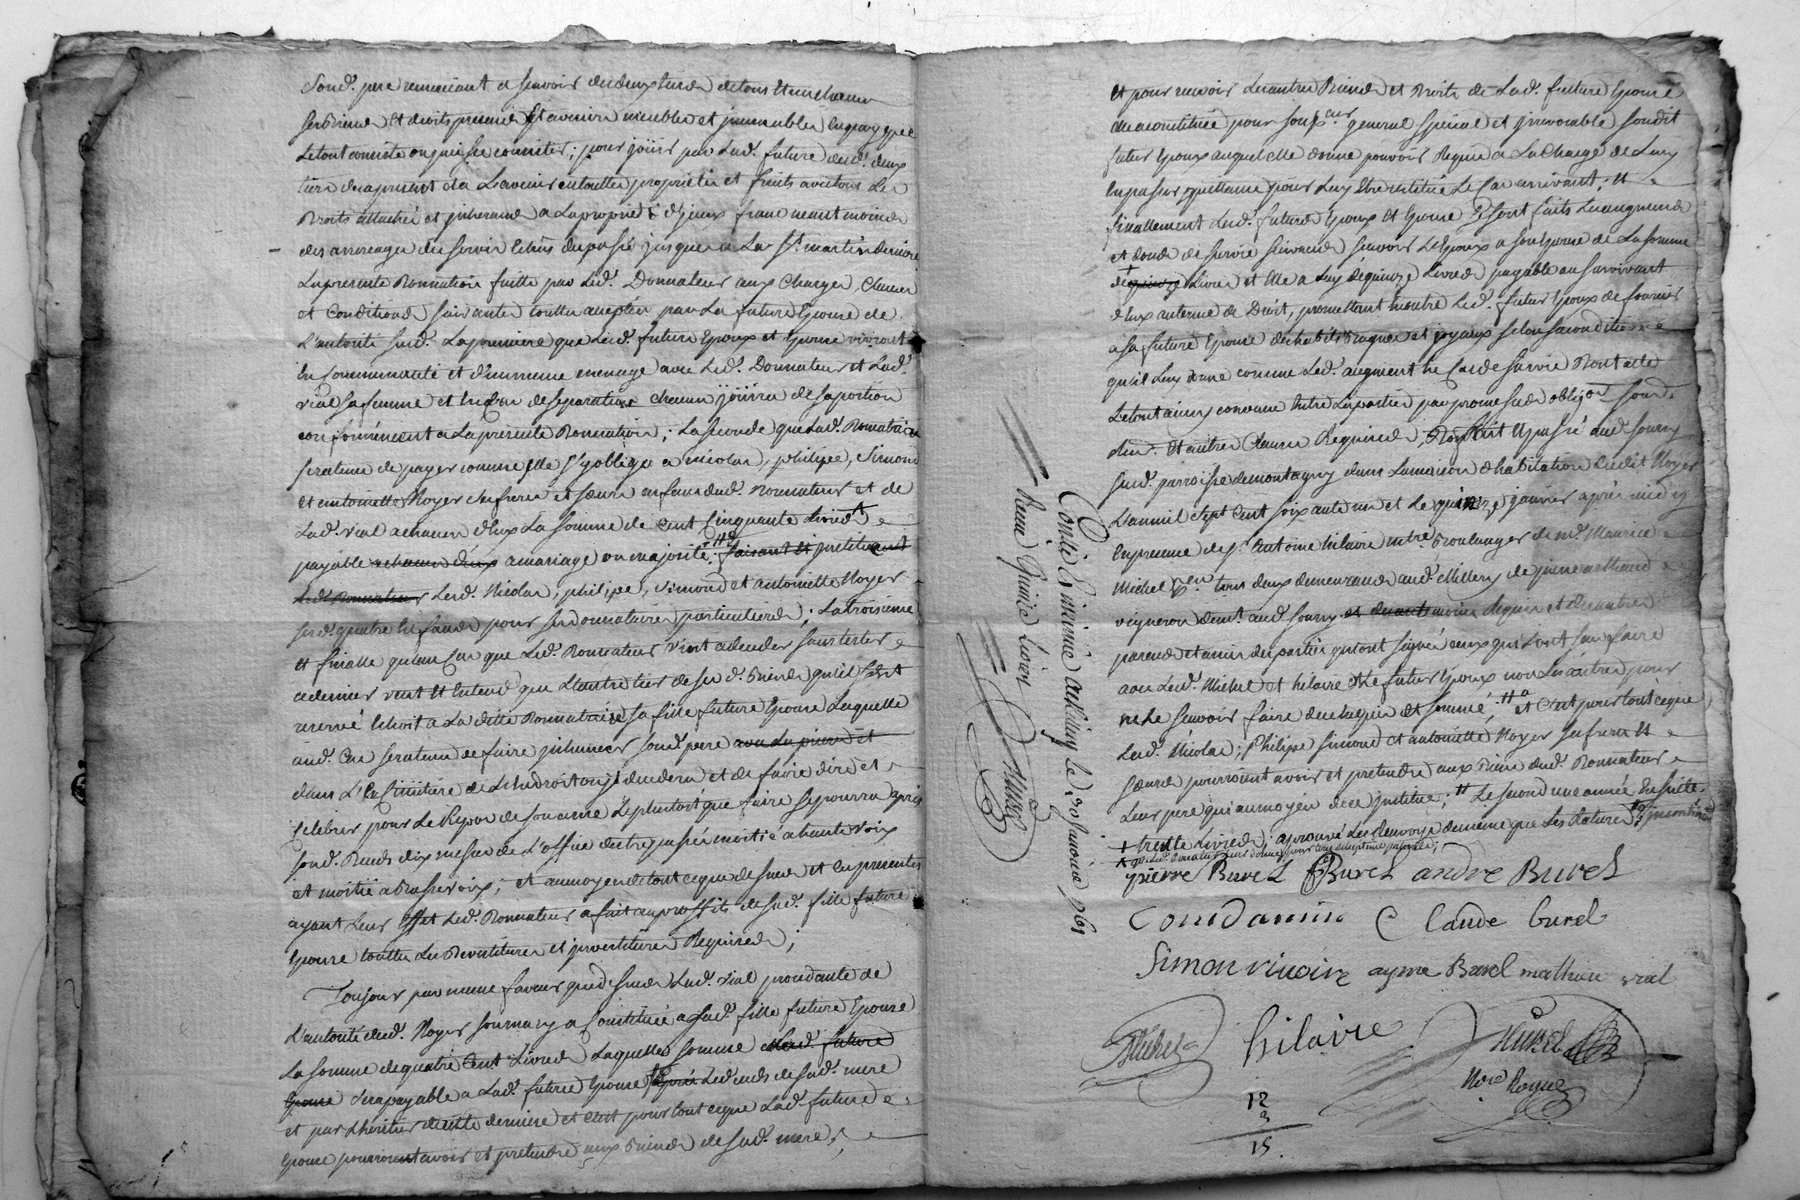 Sond. pere renonçant et scavoir des deux tiers de tous et un chacun
ses biens et droits presens et avenir meubles et immeubles en quoy que
le tout consiste ou puisse consister; pour jöüir par lad. future desd. deux
tiers des a present et a l'avenir en toutte proprietté et fruits avec tous les
droits attaché et inherand a la proprieté d'yceux franc neant moins
des arrerages des servis echus du passé jusques a la St. martin derniere
la presente Donnation faitte par led. Donnateur aux charges, clauses
et conditions suivantes touttes accepteé par la future Epouse de
l'autorité susd. la premiere que lesd. futurs Epoux et Epouse vivront
en Communauté et d'un meme menage avec led. Donnateur et lad.
vial sa femme et en cas de separation chacun jöüira de sa portion
conformement a la presente Donnation; la seconde que lad. Donnataire
sera tenue de payer comme elle s'y oblige a nicolas, philipe, Simond
et antoinette Noyer ses freres et soeur enfans dud. Donnateur et de
lad. vial a chacun d'eux la somme de cent Cinquante livres
payable a chacun d'eux a mariage ou majorité; faisant et instituant
led. Donnateur lesd. Nicolas, philipe, simond et antoinette Noyer
sesd. quatre Enfands pour ses donnataires particuliers; la troisieme
et finalle qu'au cas que led. Donnateur vint a deceder sans tester
ce dernier veut et Entend que l'autre tiers de sesd. biens qu'il s'est
reservé Echoit a la ditte Donnataire sa fille future Epouse laquelle
aud. Cas sera tenue de faire inhumer sond. pere avec les prieres et
dans l'Cimitiere de l'Endroit ou il decedera et de faire dire et
celebrer pour le Repos de son ame le plustost que faire se pourra apres
sond. deceds dix messes de l'office des trepassés moitié a haute voix
et moitié a basse voix; et au moyen de tout ce que dessus et les presentes
ayant leur effet led. Donnateur a fait au proffit de sad. fille future
Epouse touttes les Devestitures et jnvestitures Requises;
Toujours par meme faveur que dessus lad. vial procedante de
l'autorité dud. Noyer son mary a Constitué a sad. fille future Epouse
la somme de quatre Cent livres laquelle somme lad. future
Epouse sera payable a lad. future Epouse apres le deceds de sad. mere
et par l'heritier de cette derniere et c'est pour tout ce que lad. future
Epouse pouroient avoir et pretendre aux biens de sad. mere;
et pour recevoir les autres biens et droits de lad. future Epouse
elle a constitueé pour son pcur general special et jrrevocable sondit
futur Epoux auquel elle donne pouvoir Requis a la charge de luy
en passer quittance pour luy Etre restitué le Cas arrivant; et
finallement lesd. futurs Epoux et Epouse se sont faits les augmends
et donds de survie suivands scavoir l'Epoux a son Epouse de la somme
de quinze livres et elle a luy de quinze livres payable au survivant
d'Eux aux termes de Droit, promettant en outre led. futur Epoux de fournir
a sa future Epouse des habits bagues et joyaux selon sa condition
qu'il luy donne comme led. augment en Cas de survie dont acte
le tout ainsy convenu Entre les parties par promesses obligon. soud.
renon. et autres Clauses Requises, fait et passé aud. sourzy
susd. parroisse de montagny dans la maison d'habitation dudit Noyer
l'an mil sept cent soixante un et le quinze janvier apres midy
En presence de sr. Antoine hilaire mtre. Boulanger et de mr. Maurice
Michel Pen. tous deux demeurands aud. Millery de pierre arthaud
vigneron demt. aud. sourzy et de autres moins de quin et de autres
parens et amis des parties qui ont signé ceux qui l'ont sçu faire
avec lesd. Michel et hilaire et le futur Epoux non les autres pour
ne le scavoir faire de ce Enquis et sommé; et c'est pour tout ce que
lesd. Nicolas, Philipe Simond et antoinette Noyer ses freres et
soeurs pourroient avoir et pretendre aux biens dud. Donnateur
leur pere qui au moyen de ce jnstitue; le second une année En suitte
trente livres; aprouvé les Renvoys de meme que les Ratures
pierre Burel Burel andre Burel
Condamin Claude burel
Simon vinoire ayme Burel mathieu vial
Michel hilaire
Nore Royal
12
3
15
Conle. et insinué a Millery le 30 janvier 1761
Reçu Quinze livres